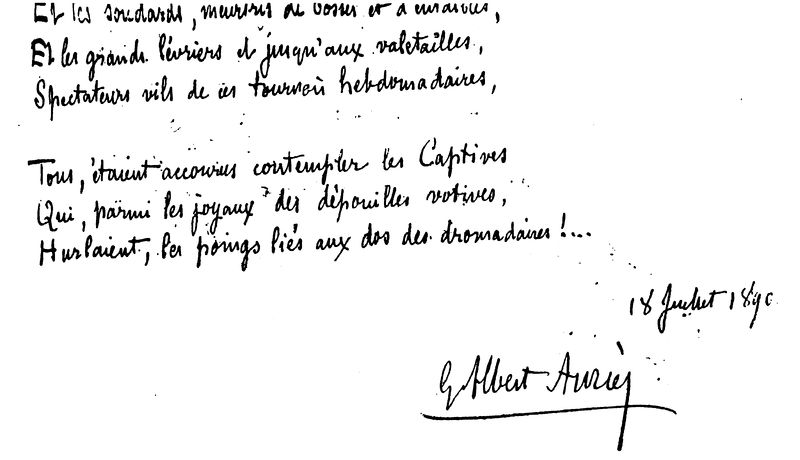 Et les soudards, meurtris de bosses et d'entailles,
Et les grands lévriers et jusqu'aux valetailles,
Spectateurs vils de ces tournois hebdomadaires,
Tous, étaient accourus contempler les Captives
Qui, parmi les joyaux des dépouilles votives,
Hurlaient, les poings liés aux dos des dromadaires !...
18 Juillet 1890
G Albert Aurier